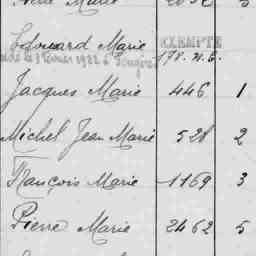 Marie
Edouard Marie EXEMPTE
178. n. 6.
Jacques Marie 446 1
Michel Jean Marie 528 2
François Marie 1169 3
Pierre Marie 2462 5